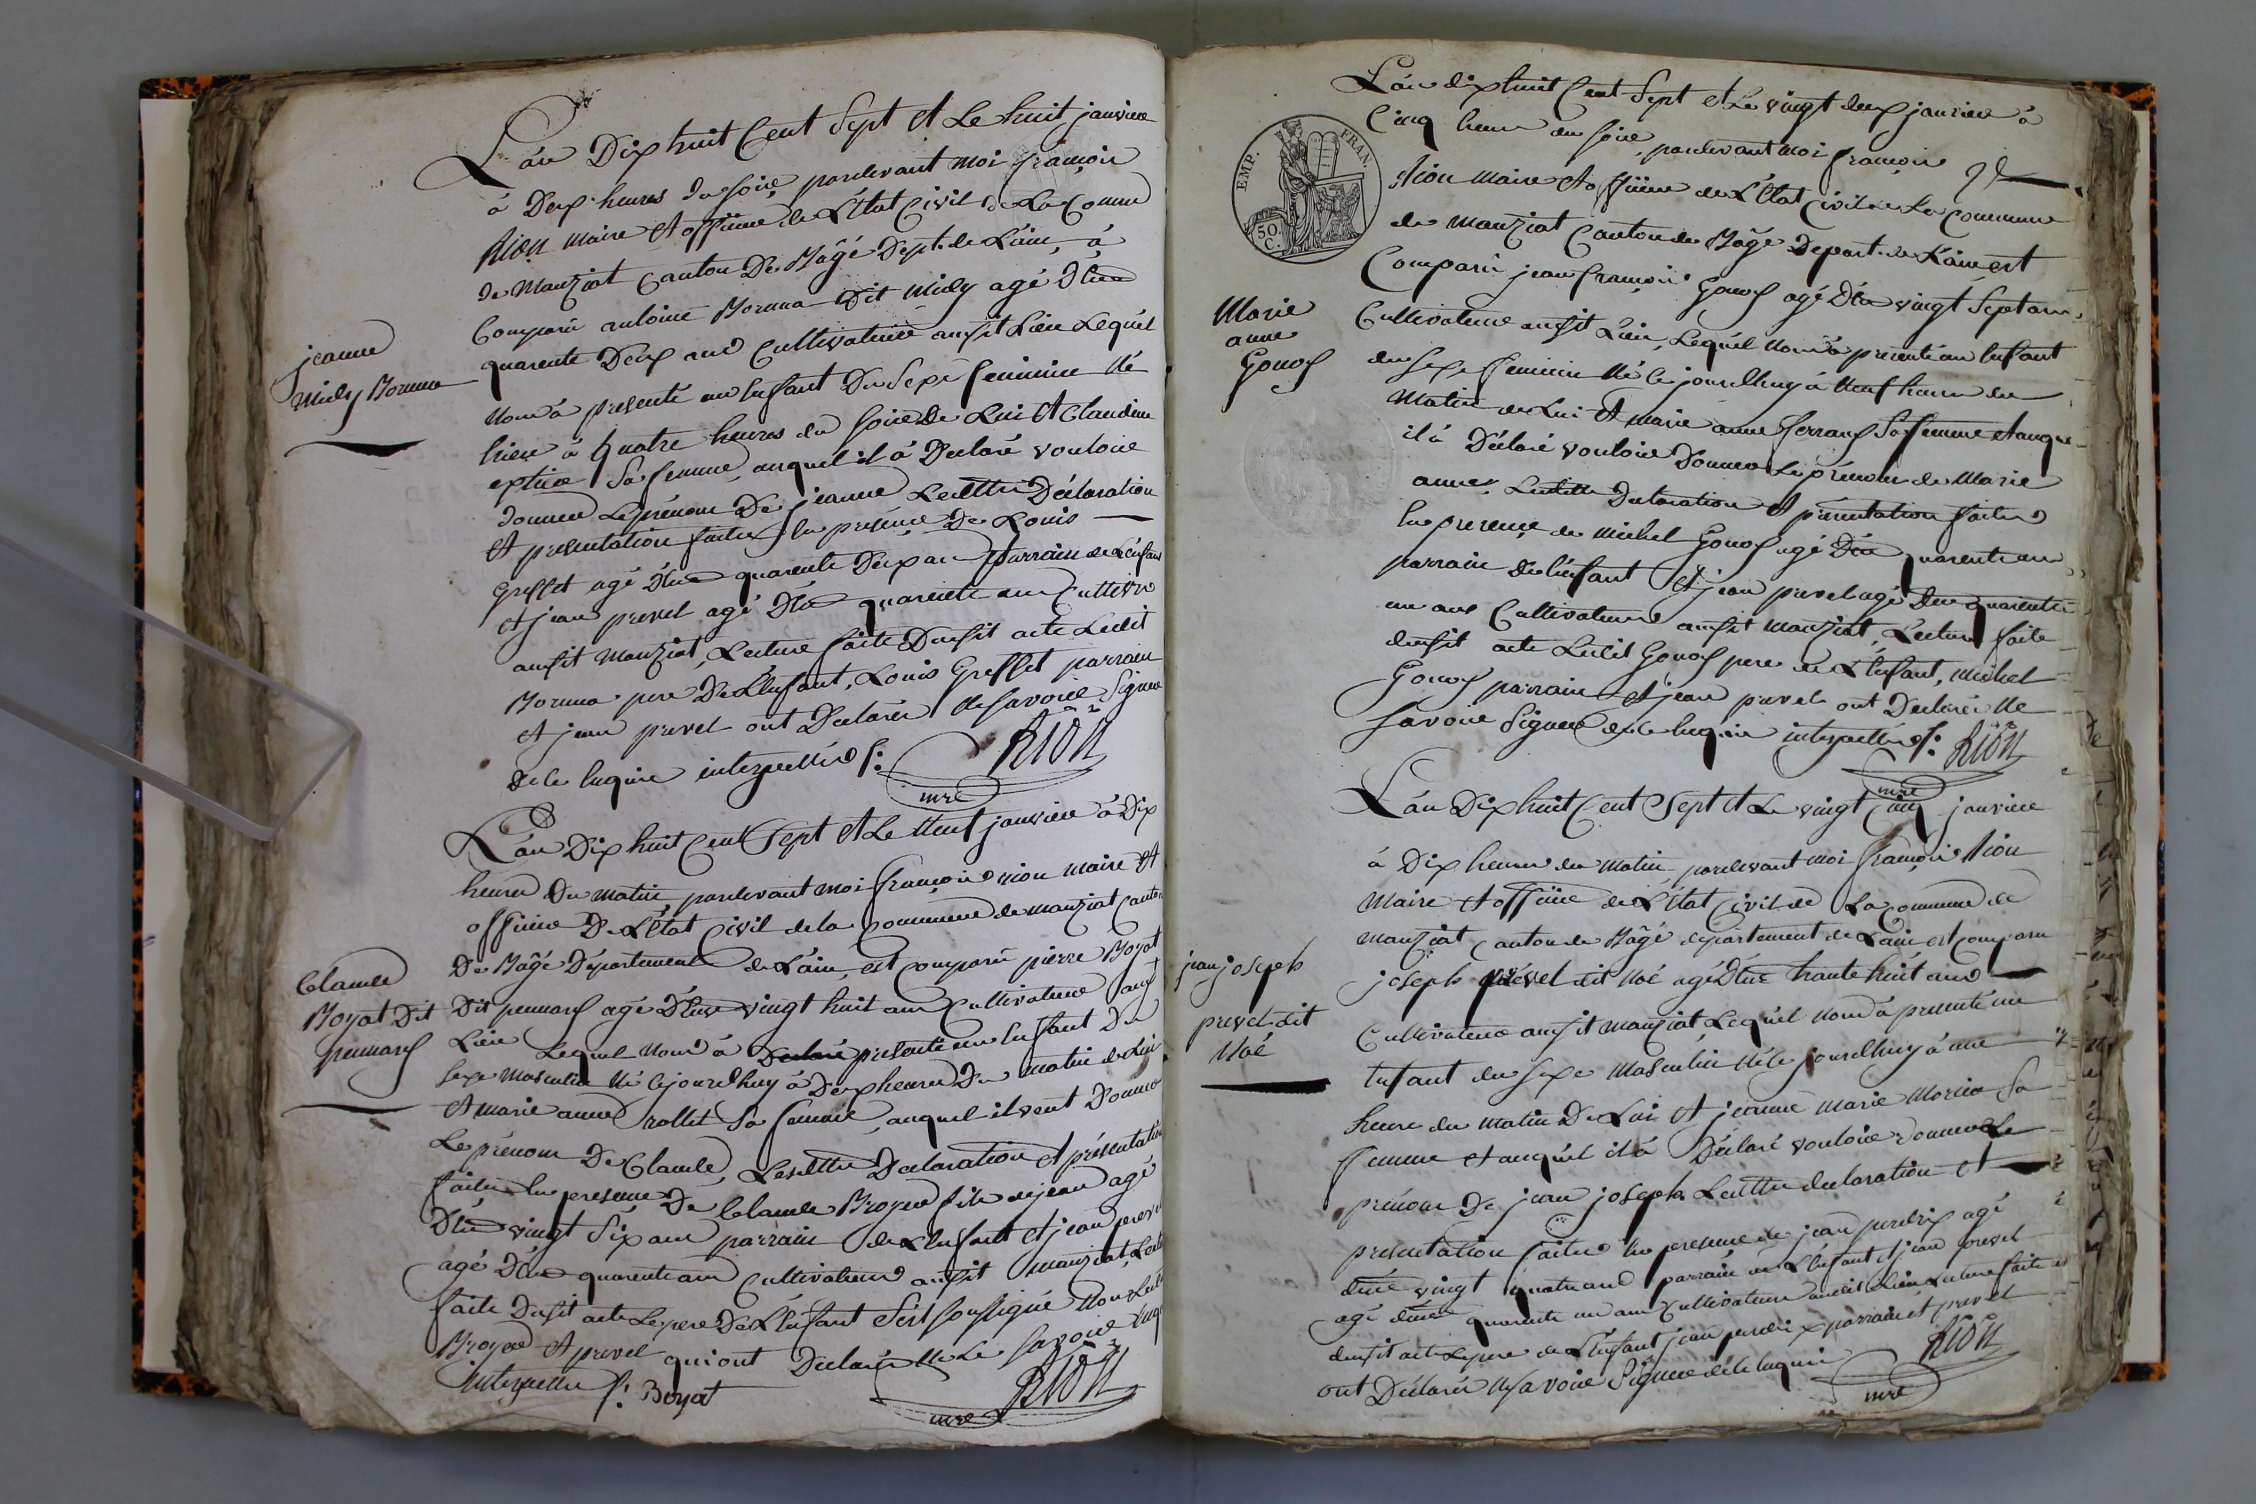 L'an Dix huit Cent Sept et Le huit janvier
à Deux heures du soire pardevant moi françois
Rion maire et officier de L'État Civil de La Comune
de Manziat Canton De Bâgé Dept. de L'ain, à
Comparu antoine Boruna Dit Midy agé D'Env
quarente Deux ans Cultivateur ausit Lieu Lequel
jeanne
Midy Boruna
nous à presenté un Enfant Du Sexe feminin né
hier à quatre heures du soire de Lui et Claudine
Sa femme, auquel il à Declaré vouloir
donner Le prénom De jeanne Lesdittes Déclaration
et presentation faittes En présence De Louis
Greffet agé d'Env quarente Deux ans parrain de L'enfant
et jean prevel agé D'Env quarente ans Cultivrs
ausit Manziat, Lecture faite Dusit acte Ledit
Boruna pere De L'Enfant, Louis Greffet parrain
et jean prevel ont Déclarés ne savoir Signer
De le require interpellés S:
Rion
mre
L'an Dix huit Cent Sept et Le Neuf janvier à Dix
heures Du matin, pardevant moi françois Rion maire et
officier De L'État Civil de la Commune de manziat Canton
De Bâgé Département de L'ain, est comparu pierre Boyat
Claude
Boyat Dit
pennard
Dit pennard agé D'Env vingt huit ans Cultivateur ausit
Lieu Lequel Nous à Declaré présenté un Enfant Du
Sexe masculin né cejourd'huy à Deux heures Du matin de Lui
et marie anne rollet Sa femme, auquel il veut Donner
Le prénom De Claude, Lesdittes Declaration et présentation
faites En presence De Claude Broyer fils de jean agé
D'Env vingt Six ans parrain de L'Enfant et jean prevel
agé D'Env quarente ans Cultivateurs ausit manziat, Lecture
faite Dusit acte Le pere De L'Enfant S'est soussigné non Ledit
Broyer et prevel qui ont Déclarés ne Le savoir
interpellés S: Boyat
Rion
mre
L'an dix huit Cent Sept et Le vingt deux janvier à
Cinq heures du soire, pardevant moi françois
Rion maire et officier de L'État Civil de La Commune
de manziat Canton de Bâgé Depart. de L'ain est
EMP. FRAN.
50 C.
Comparu jean françois Gonod agé D'Env vingt Sept ans
Marie
anne
Gonod
Cultivateur ausit Lieu, Lequel nous à présenté un Enfant
du sexe feminin né ce jourd'huy à Neuf heures du
Matin de Lui et marie anne ferrand Sa femme et auquel
il à Déclaré vouloir Donner Le prénom de Marie
anne, Lesdittes Declaration et présentation faites
En presence de Michel Gonod agé D'Env quarente ans
parrain de L'enfant et jean prevel agé D'Env quarente
un ans Cultivateurs ausit Manziat, Lecture faite
dusit acte Ledit Gonod pere de L'Enfant, Michel
Gonod parrain et jean prevel ont Declarés Ne
savoir Signer de le requis interpellés S:
Rion
mre
L'an Dix huit Cent Sept et Le vingt Cinq janvier
à Dix heures du matin pardevant moi françois Rion
Maire et officier de L'État Civil de La Commune de
manziat Canton de Bâgé département de L'ain est comparu
jean joseph
prevel dit
Noé
joseph prevel dit Noé agé D'Env trante huit ans
Cultivateur ausit manziat Lequel nous à presenté un
Enfant du sexe Masculin né ce jourd'huy à une
heure du matin De Lui et jeanne marie Morier Sa
femme et auquel il à Déclaré vouloir donner Le
prénom De jean joseph Lesdittes declaration et
presentation faites En presence de jean perdrix agé
d'env vingt quatre ans parrain de L'Enfant et jean prevel
agé d'env quarente un ans Cultivateurs audit Lieu, Lecture faite
dusit acte Le pere de L'Enfant jean perdrix parrain et prevel
ont Déclarés ne savoir Signer de le requis
Rion
mre